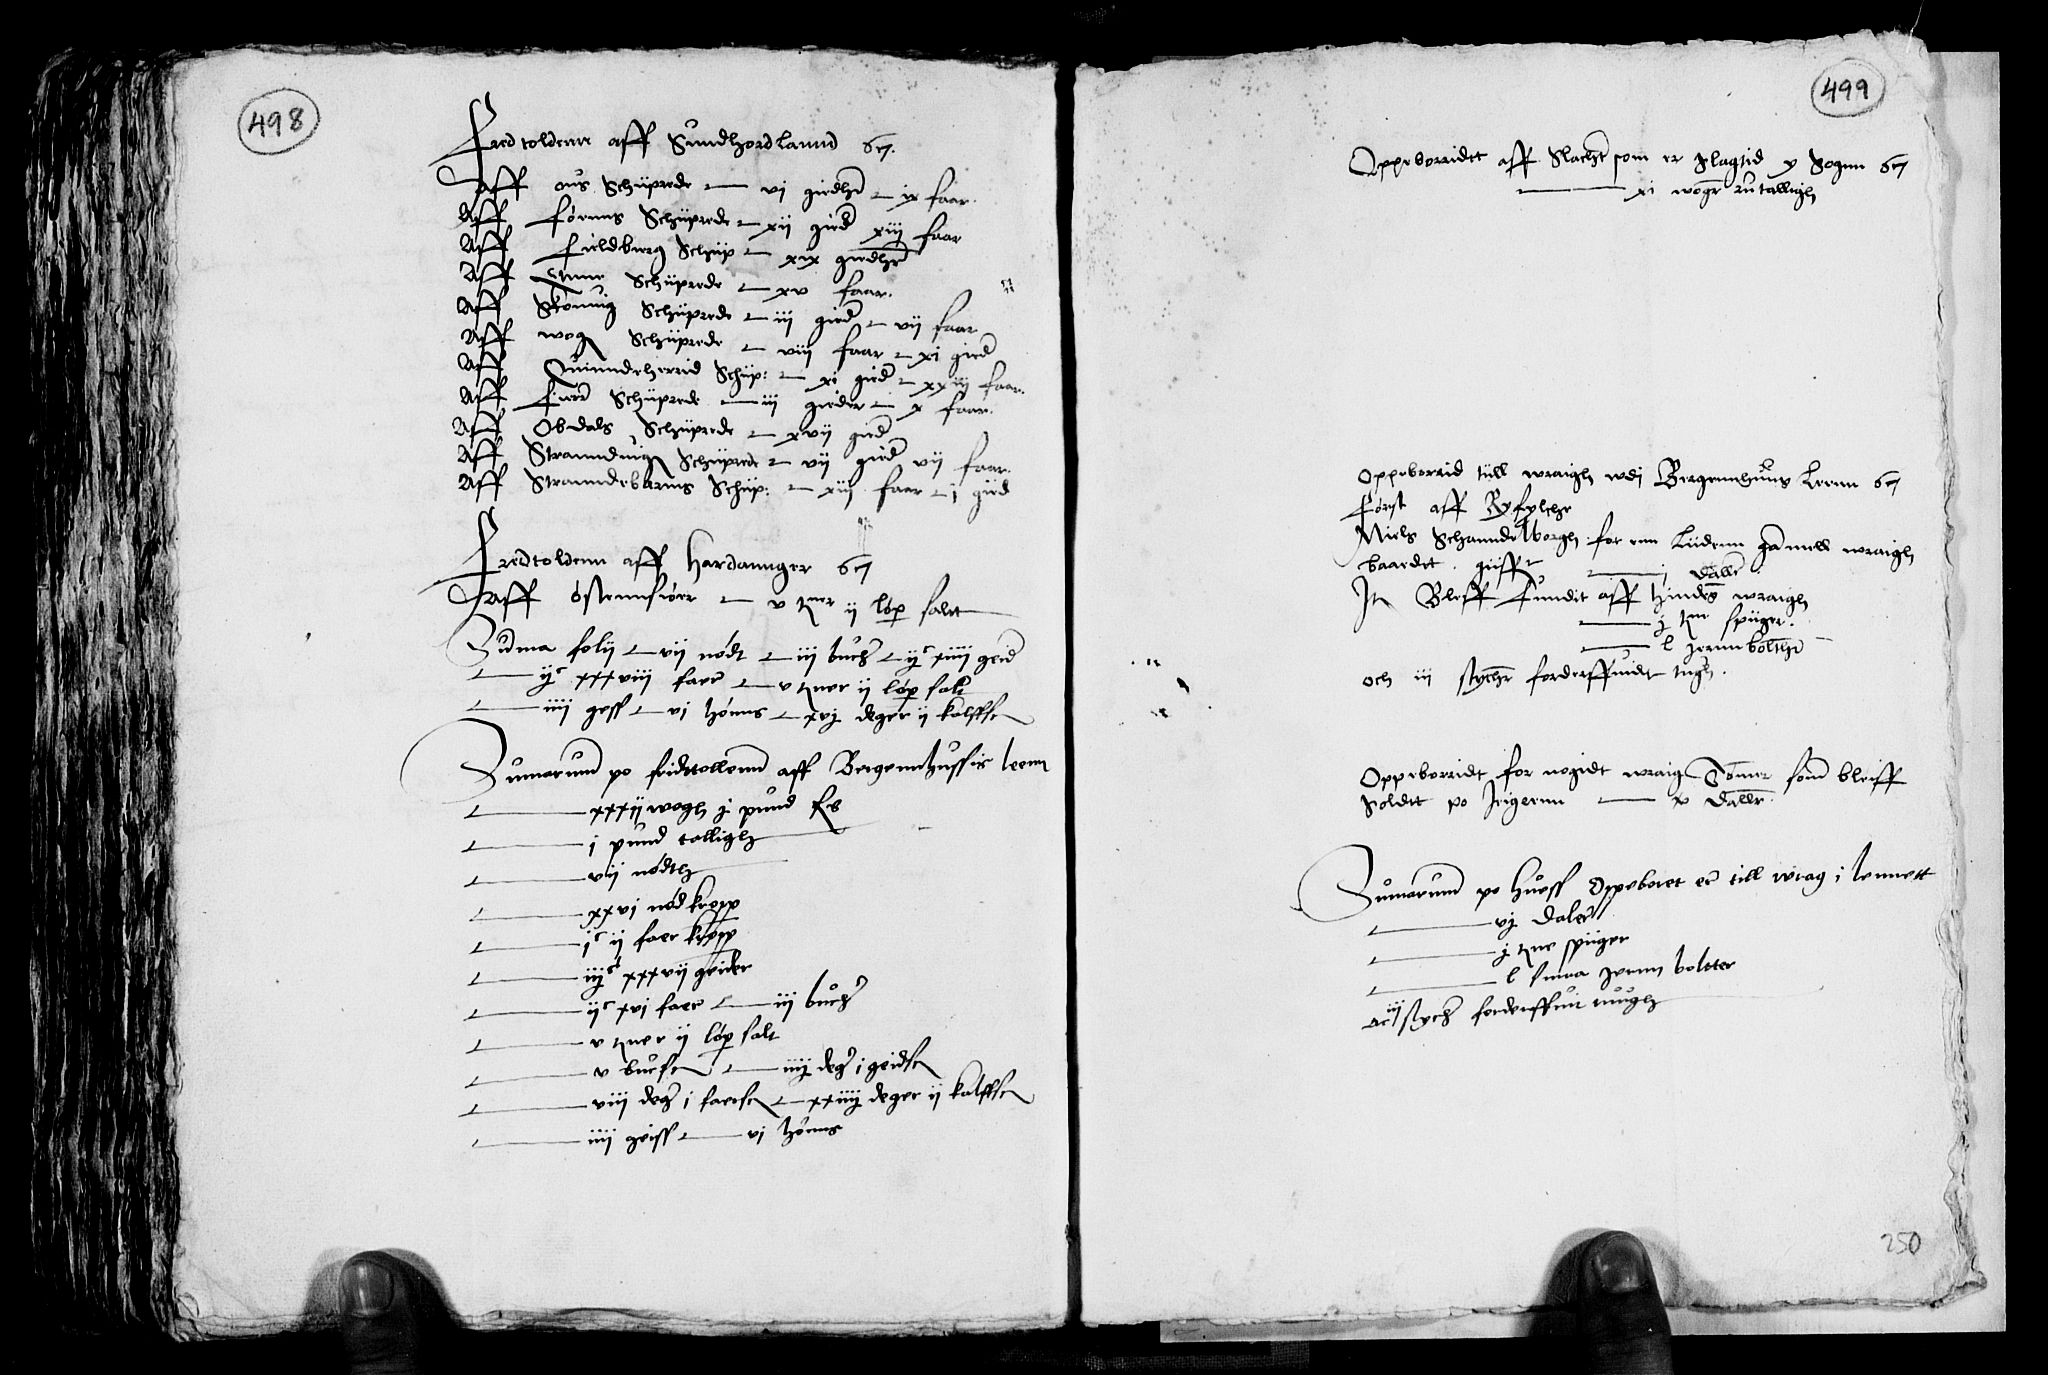 498
Fredtoldenn aff Sundhordlannd 67.
Aff ous Schiiprede — vj giedher — ix faar.
Aff Førnns Schiiprede — xij gieder xiij faar
Aff Fieldberg Schiip — xix giedher
Aff Etnne Schiiprede — xv faar.
Aff Skonnig Schiiprede — iij gieder — vij faar
Aff wog Schiiprede — viij faar — xi gieder
Aff Quinndeherrid Schiip: — xi gieder — xxiij faar.
Aff Fiere Schiiprede — iij gieder — x faar.
Aff Obdals Schiiprede — xvij gieder
Aff Stranndvig Schiiprede — vij gieder vij faar.
Aff Stranndebarms Schiip: — xij faar — j gied
Fredtoldenn aff Hardannger 67
Aff østennsiøer — v tner ij løp saltt
Sudma folij — vij nødt — iij bucher — ijc xiiij geider
— ijc xxxviij faer — v tner ij løp salt
— iiij gess — vj hønns — xvj deger ij kalffsken
Sumarum po fridttollenn aff Bergennhussis leenn
— xxxij wogh j pund fisk
— j pund talligh
— vij nødth
— xxvj nødkropp
— jc ij faer kropp
— iijc xxxvij geider
— ijc xvj faer — iij bucher
— v tner ij løp salt
— v bucsken — iiij deger j geidskenn
— viij deger j faerskenn — xxiiij deger ij kalffskenn
— iiij geiss — vj hønns
499
Oppeborridtt aff Slachter som er slagtid y Sognn 67
— xi woger ru talligh
Oppeborrid tiill wraigh wdj Bergennhuus Leenn 67
Først aff Ryfylche
Niels Schanndelborgh for enn liidenn gamell wraigh
baardtt. giiffuit — j daller.
Itt Bleff fundit aff hindes wraigh
— j tne spiiger.
— l jernnbolther
och iij stycher forderffuidt tugh.
Oppeborridtt for nogidt wraig Tømer som bleiff
Soldtt po Jeigerenn — v daller.
Sumarum po huess Oppeboret er till wrag i lennett
— vj daler
— j tne spiiger
— l smaa jernn boltter
oc iij stycher forderffuit tuugh
250